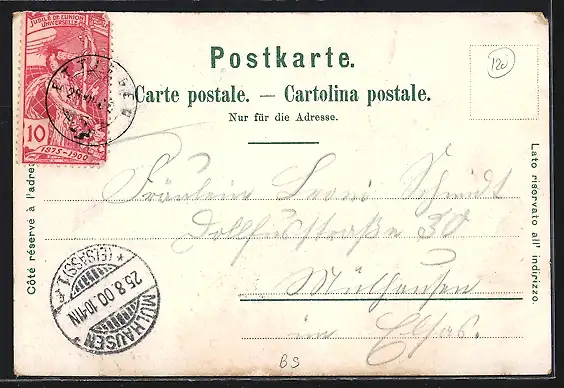 JUBILÉ DE L'UNION
UNIVERSELLE
10
1875-1900
ETTINGEN
Postkarte.
Carte postale. — Cartolina postale.
Nur für die Adresse.
120
Côté réservé à l'adre
Lato riservato all' indirizzo.
Fräulein Leoni Schmidt
Dollfusstraße 30
Mülhausen
im Elsas.
MÜLHAUSEN
25.8.00.10-11N
*(ELSASS)1.
BS